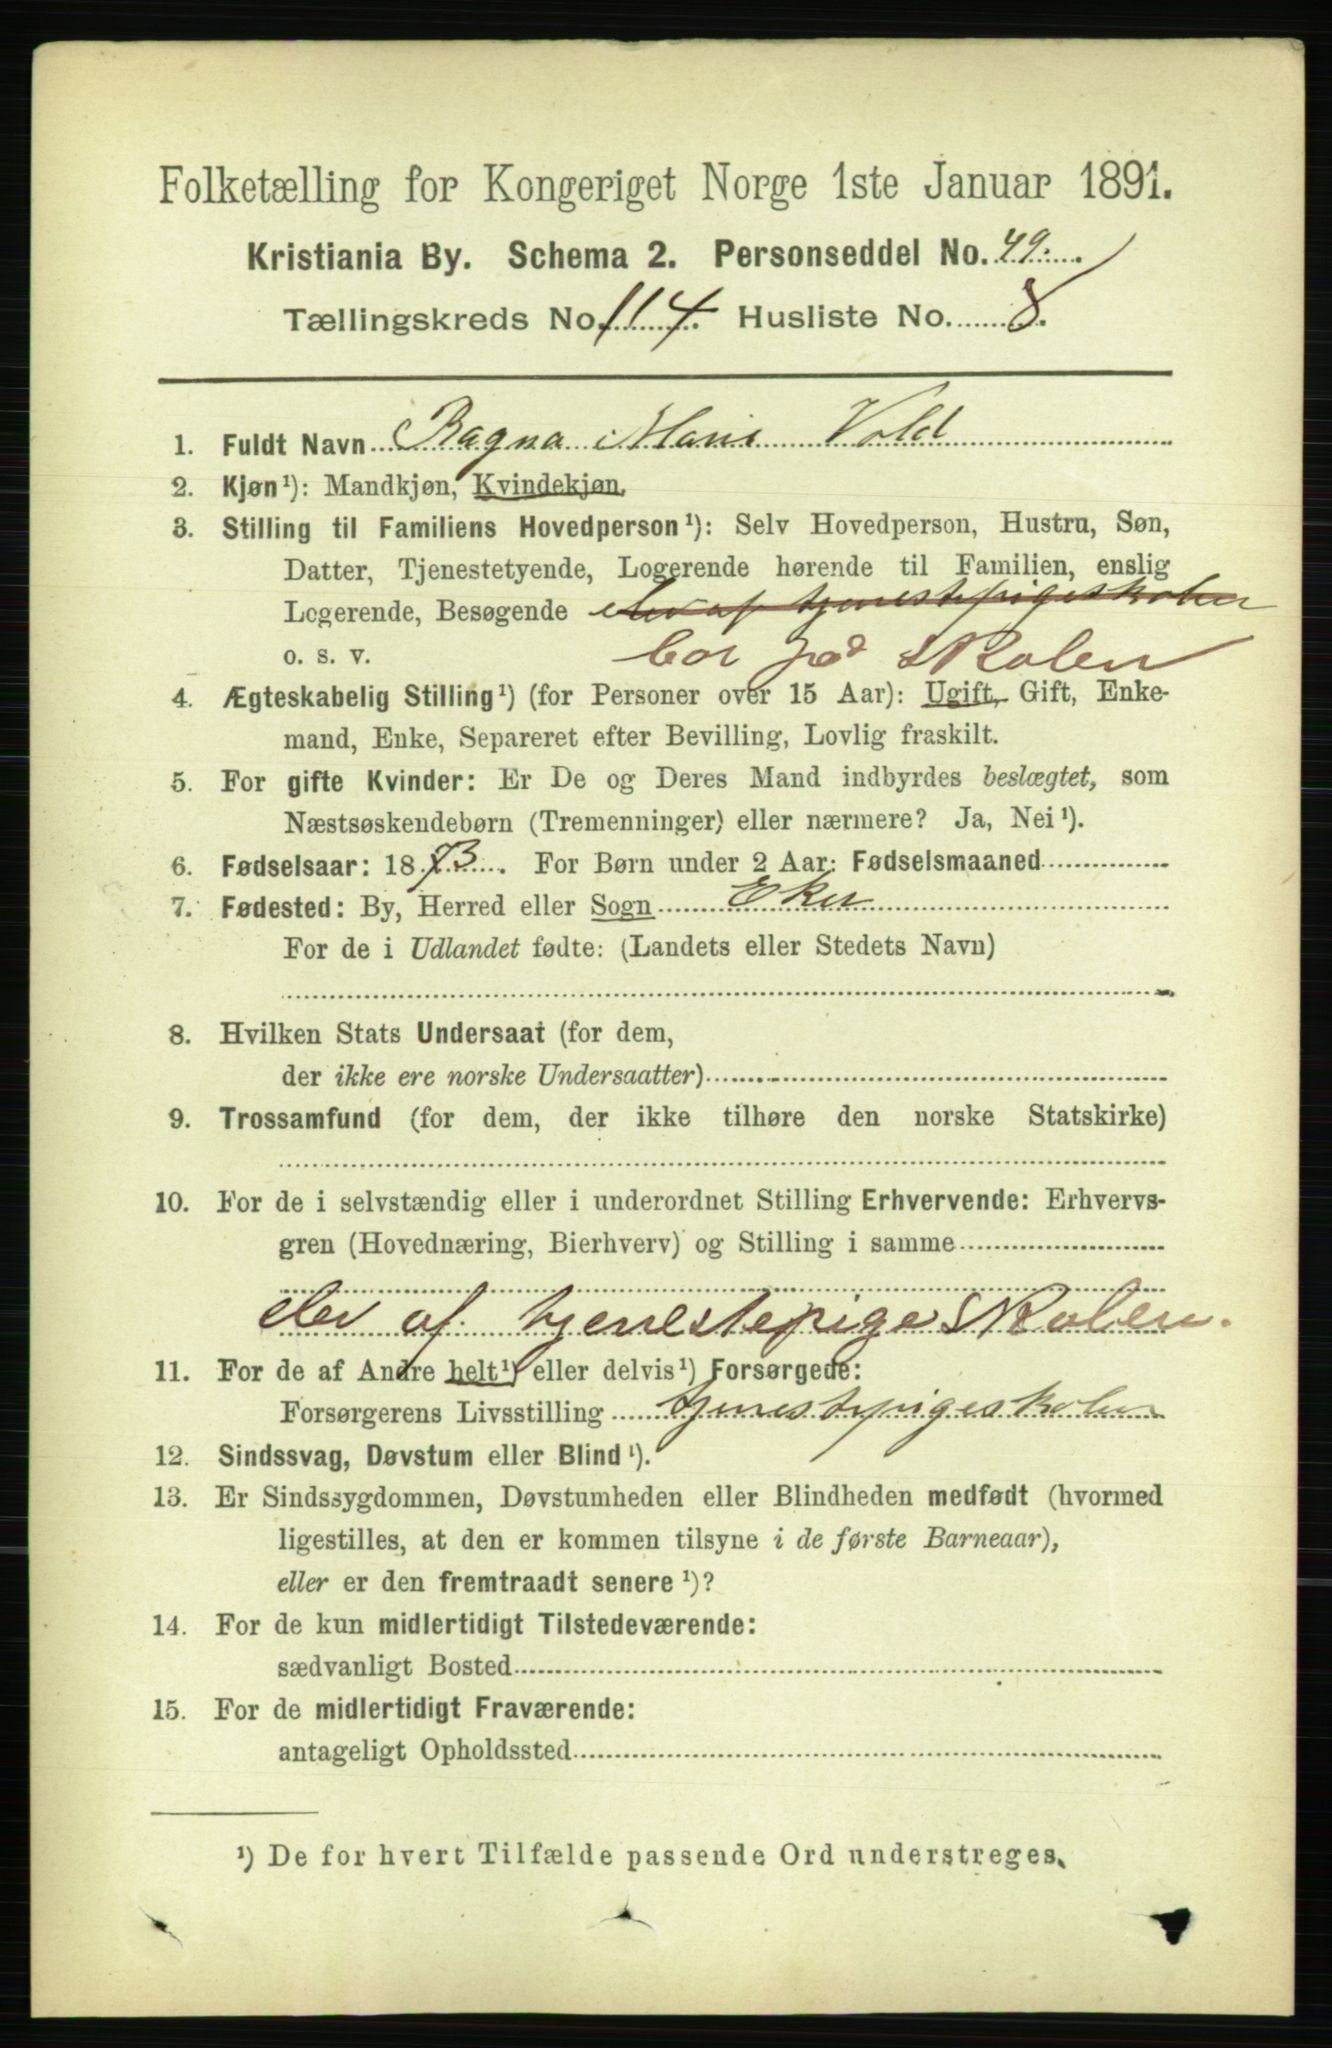 Folketælling for Kongeriget Norge 1ste Januar 1891.
Kristiania By. Schema 2. Personseddel No. 49.
Tællingskreds No. 114. Husliste No. 8.
1. Fuldt Navn Ragna Marie Vold
2. Kjøn¹): Mandkjøn, Kvindekjøn.
3. Stilling til Familiens Hovedperson¹): Selv Hovedperson, Hustru, Søn,
Datter, Tjenestetyende, Logerende hørende til Familien, enslig
Logerende, Besøgende elev af tjenestepigeskolen
o. s. v. bor på Skolen
4. Ægteskabelig Stilling¹) (for Personer over 15 Aar): Ugift, Gift, Enke-
mand, Enke, Separeret efter Bevilling, Lovlig fraskilt.
5. For gifte Kvinder: Er De og Deres Mand indbyrdes beslægtet, som
Næstsøskendebørn (Tremenninger) eller nærmere? Ja, Nei¹).
6. Fødselsaar: 1873. For Børn under 2 Aar: Fødselsmaaned
7. Fødested: By, Herred eller Sogn Eker
For de i Udlandet fødte: (Landets eller Stedets Navn)
8. Hvilken Stats Undersaat (for dem,
der ikke ere norske Undersaatter)
9. Trossamfund (for dem, der ikke tilhøre den norske Statskirke)
10. For de i selvstændig eller i underordnet Stilling Erhvervende: Erhvervs-
gren (Hovednæring, Bierhverv) og Stilling i samme
elev af tjenestepigeskolen.
11. For de af Andre helt¹) eller delvis¹) Forsørgede:
Forsørgerens Livsstilling tjenestepigeskolen
12. Sindssvag, Døvstum eller Blind¹).
13. Er Sindssygdommen, Døvstumheden eller Blindheden medfødt (hvormed
ligestilles, at den er kommen tilsyne i de første Barneaar),
eller er den fremtraadt senere¹)?
14. For de kun midlertidigt Tilstedeværende:
sædvanligt Bosted
15. For de midlertidigt Fraværende:
antageligt Opholdssted
¹) De for hvert Tilfælde passende Ord understreges.